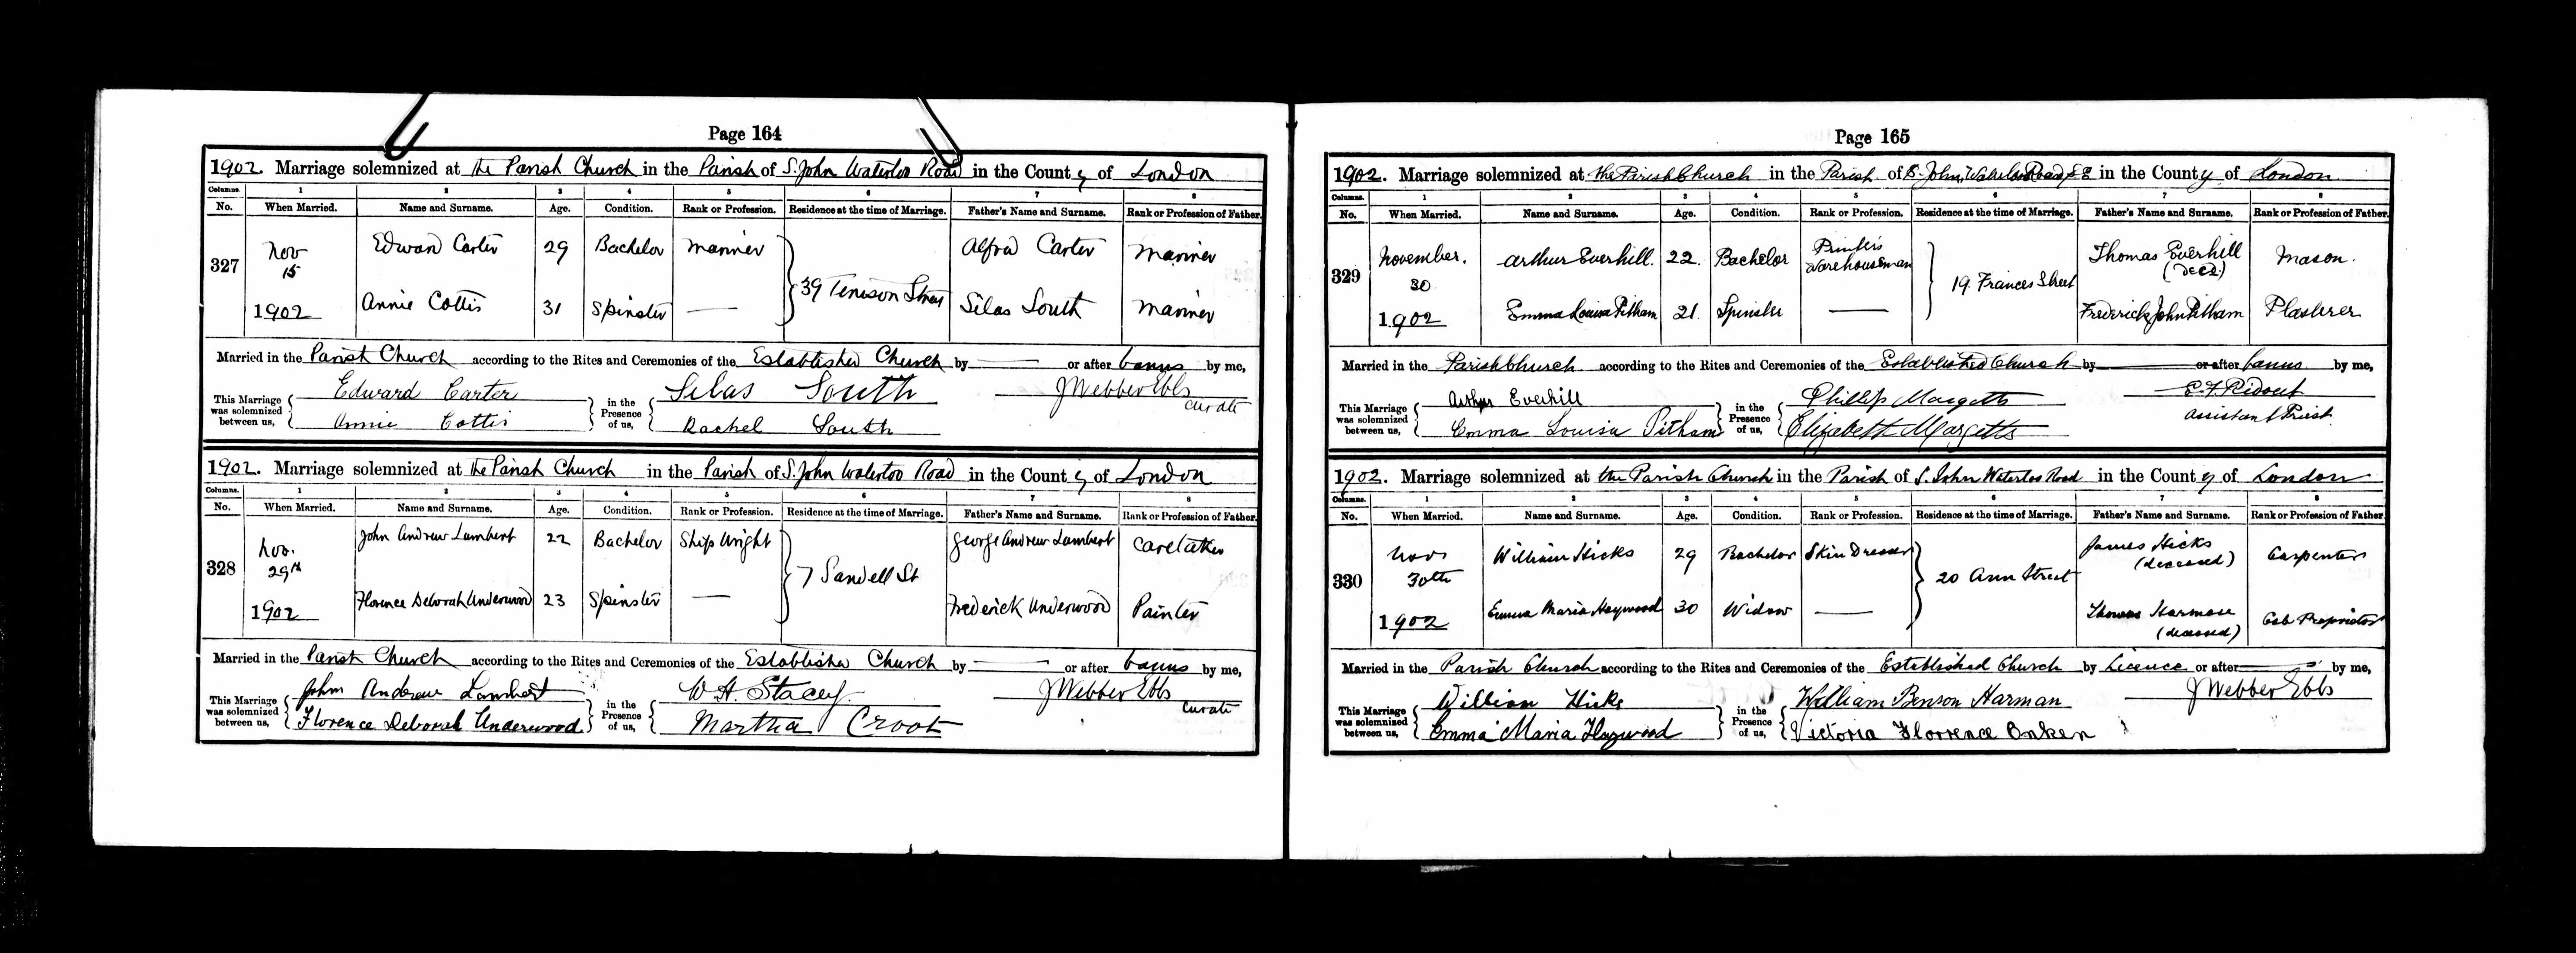 Page 164
1902. Marriage solemnized at the Parish Church in the Parish of S. John Waterloo Road in the County of London
Columns. 1 2 3 4 5 6 7 8
No. When Married. Name and Surname. Age. Condition. Rank or Profession. Residence at the time of Marriage. Father's Name and Surname. Rank or Profession of Father.
327 Nov 15 1902
Edward Carter 29 Bachelor Mariner 39 Tenison Street Alfred Carter Mariner
Annie Cottis 31 Spinster — Silas South Mariner
Married in the Parish Church according to the Rites and Ceremonies of the Established Church by — or after banns by me,
This Marriage was solemnized between us, Edward Carter Annie Cottis in the Presence of us, Silas South Rachel South J Webber Ebbs curate
1902. Marriage solemnized at the Parish Church in the Parish of S. John Waterloo Road in the County of London
Columns. 1 2 3 4 5 6 7 8
No. When Married. Name and Surname. Age. Condition. Rank or Profession. Residence at the time of Marriage. Father's Name and Surname. Rank or Profession of Father.
328 Nov. 29th 1902
John Andrew Lambert 22 Bachelor Ship Wright 7 Sandell St George Andrew Lambert Caretaker
Florence Deborah Underwood 23 Spinster — Frederick Underwood Painter
Married in the Parish Church according to the Rites and Ceremonies of the Established Church by — or after banns by me,
This Marriage was solemnized between us, John Andrew Lambert Florence Deborah Underwood in the Presence of us, W H Stacey Martha Croot J Webber Ebbs curate
Page 165
1902. Marriage solemnized at the Parish Church in the Parish of S. John, Waterloo Road S.E in the County of London.
Columns. 1 2 3 4 5 6 7 8
No. When Married. Name and Surname. Age. Condition. Rank or Profession. Residence at the time of Marriage. Father's Name and Surname. Rank or Profession of Father.
329 November. 30 1902
Arthur Everhill. 22. Bachelor Printer's Warehouseman 19. Frances Street Thomas Everhill (decd.) Mason.
Emma Louisa Pitham 21. Spinster — Frederick John Pitham Plasterer
Married in the Parish Church according to the Rites and Ceremonies of the Established Church by — or after banns by me,
This Marriage was solemnized between us, Arthur Everhill Emma Louisa Pitham in the Presence of us, Phillip Margetts Elizabeth Margetts E. F. Ridout Assistant Priest.
1902. Marriage solemnized at the Parish Church in the Parish of S. John Waterloo Road in the County of London
Columns. 1 2 3 4 5 6 7 8
No. When Married. Name and Surname. Age. Condition. Rank or Profession. Residence at the time of Marriage. Father's Name and Surname. Rank or Profession of Father.
330 Nov 30th 1902
William Hicks 29 Bachelor Skin Dresser 20 Ann Street James Hicks (deceased) Carpenter
Emma Maria Haywood 30 Widow — Thomas Harman (deceased) Cab Proprietor
Married in the Parish Church according to the Rites and Ceremonies of the Established Church by Licence or after — by me,
This Marriage was solemnized between us, William Hicks Emma Maria Haywood in the Presence of us, William Benson Harman Victoria Florrence Onken J Webber Ebbs